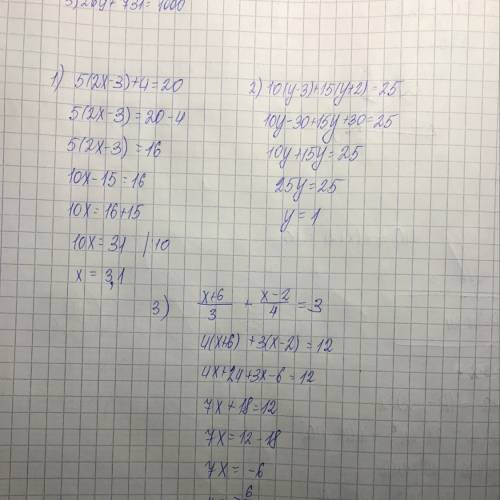 5(2x-3)+4=20
1)
5(2x-3)=20-4
5(2x-3)=16
10x-15=16
10x=16+15
10x=31 |:10
x=3,1
2) 10(y-3)+15(y+2)=25
10y-30+15y+30=25
10y+15y=25
25y=25
y=1
3) x+6/3 + x-2/4 = 3
4(x+6)+3(x-2)=12
4x+24+3x-6=12
7x+18=12
7x=12-18
7x=-6